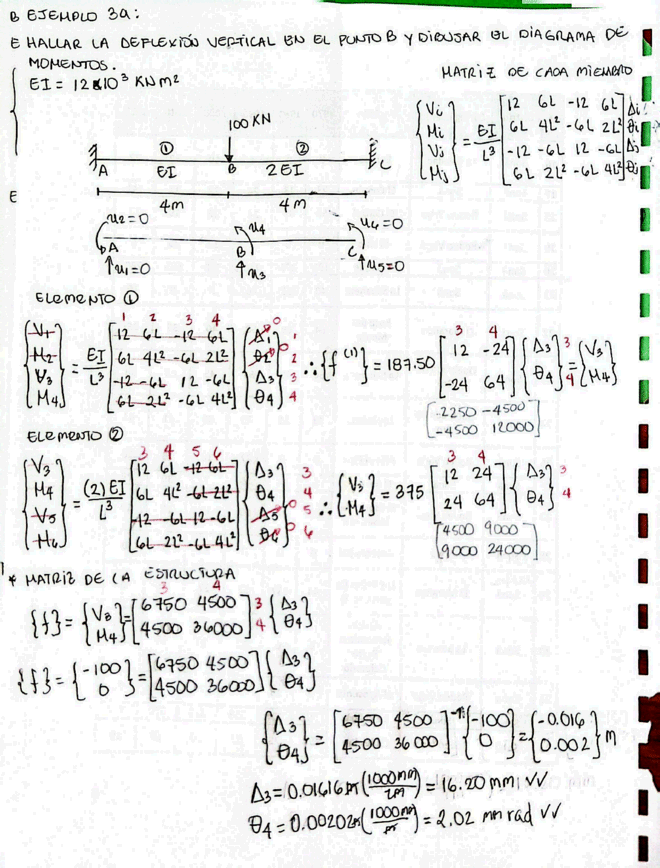 B EJEMPLO 3a:
E HALLAR LA DEFLEXIÓN VERTICAL EN EL PUNTO B Y DIBUJAR EL DIAGRAMA DE
MOMENTOS.
EI = 12x10³ KNm²
MATRIZ DE CADA MIEMBRO
{Vi Mi Vj Mj} = EI/L³ [12 6L -12 6L
6L 4L² -6L 2L²
-12 -6L 12 -6L
6L 2L² -6L 4L²] Δi θi Δj θj
100 KN
① ②
A EI B 2EI C
E
4m 4m
u2=0 u4 u6=0
A B C
u1=0 u3 u5=0
ELEMENTO ①
1 2 3 4
{V1 M2 V3 M4} = EI/L³ [12 6L -12 6L
6L 4L² -6L 2L²
-12 -6L 12 -6L
6L 2L² -6L 4L²] {Δ1 θ2 Δ3 θ4} 0 0 1 2 3 4
∴ {f⁽¹⁾} = 187.50 [12 -24
-24 64] {Δ3 θ4} = {V3 M4}
3 4 3 4
[2250 -4500
-4500 12000]
ELEMENTO ②
3 4 5 6
{V3 M4 V5 M6} = (2)EI/L³ [12 6L -12 6L
6L 4L² -6L 2L²
-12 -6L 12 -6L
6L 2L² -6L 4L²] {Δ3 θ4 Δ5 θ6} 0 0 3 4 5 6
∴ {V3 M4} = 375 [12 24
24 64] {Δ3 θ4}
3 4 3 4
[4500 9000
9000 24000]
* MATRIZ DE LA ESTRUCTURA
3 4
{f} = {V3 M4} = [6750 4500
4500 36000] 3 4 {Δ3 θ4}
{f} = {-100 0} = [6750 4500
4500 36000] {Δ3 θ4}
{Δ3 θ4} = [6750 4500
4500 36000]⁻¹ {-100 0} = {-0.016 0.002} m
Δ3 = 0.01616m (1000mm/1m) = 16.20 mm ✓✓
θ4 = 0.00202m (1000mm/m) = 2.02 mm rad ✓✓